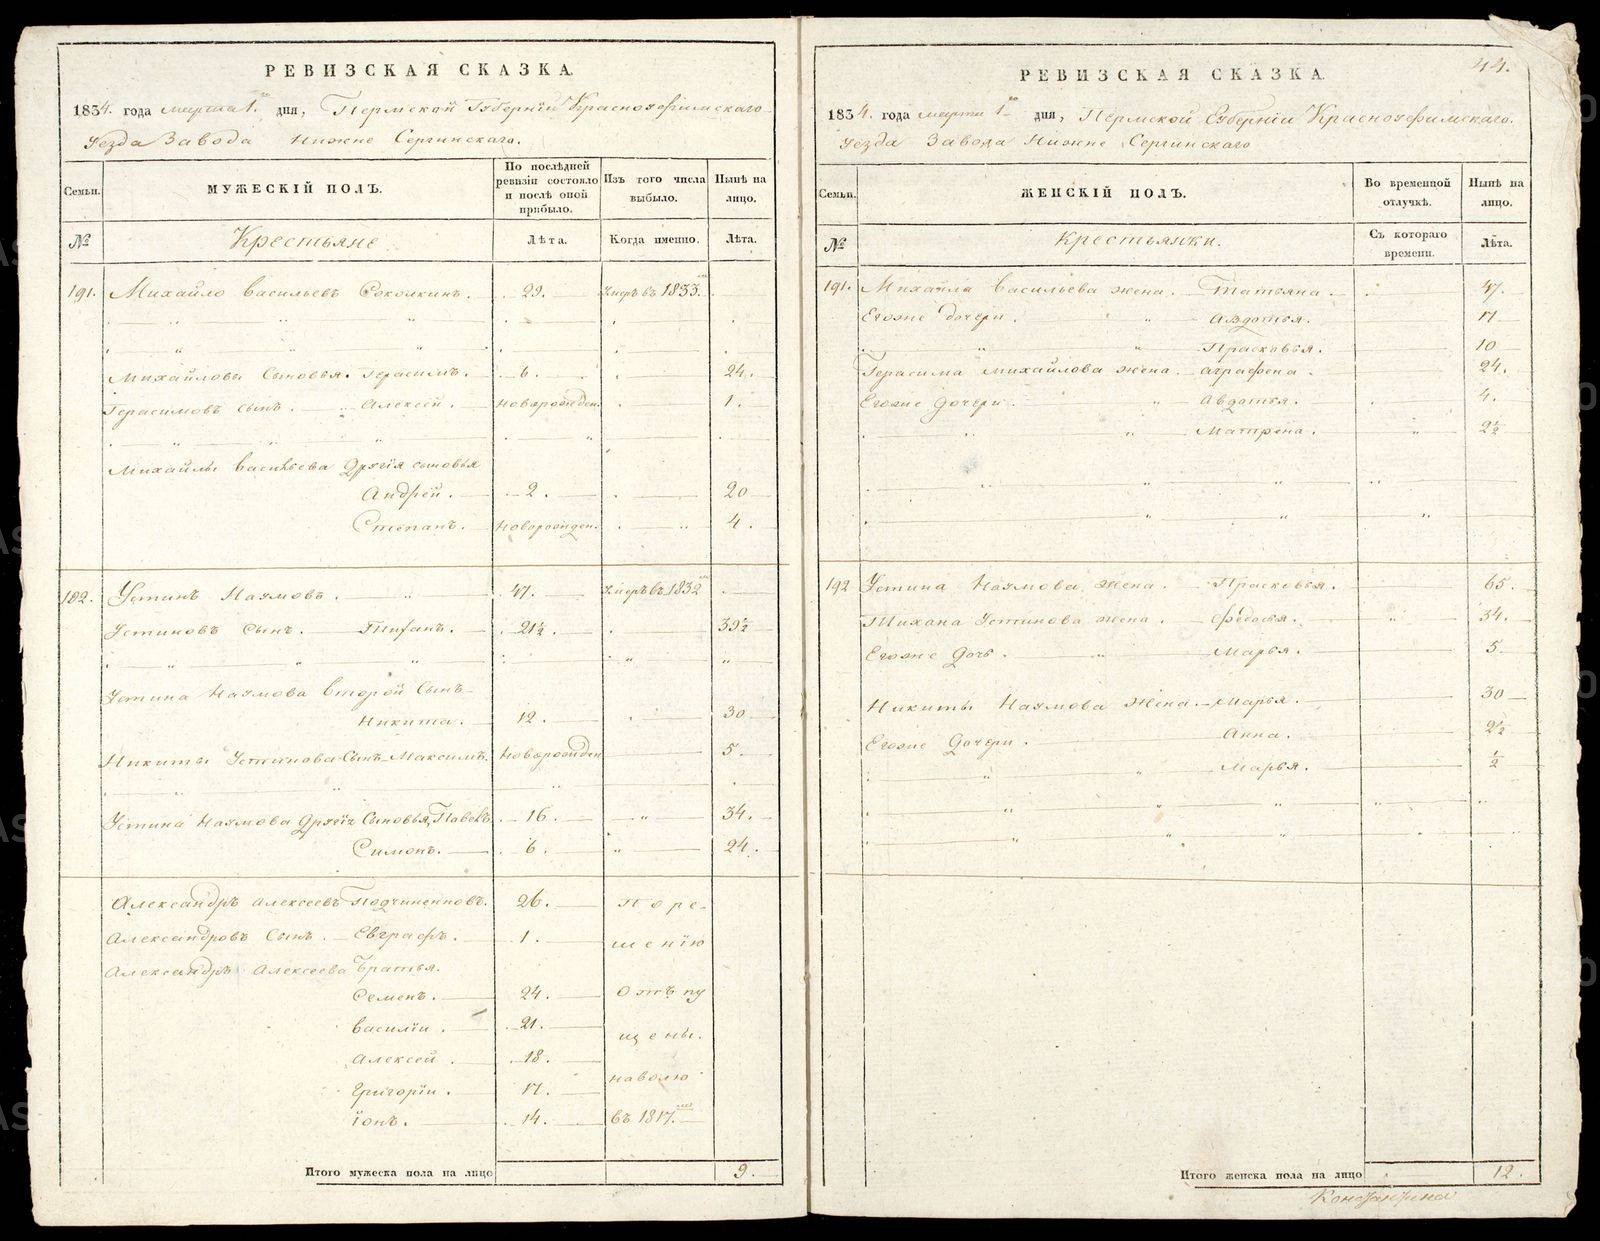 РЕВИЗСКАЯ СКАЗКА.
1834. года марта 1. дня, Пермской Губернїи Красноуфимскаго
Уезда Завода Нижне Сергинскаго.
Семьи.
МУЖЕСКІЙ ПОЛЪ.
По послѣдней ревизіи состояло и послѣ оной прибыло.
Изъ того числа выбыло.
Нынѣ на лицо.
№
Крестьяне
Лѣта.
Когда именно.
Лѣта.
191. Михайло Васильевъ Соколкинъ. 29. Умеръ въ 1833.
Михайловы Сыновья. Герасимъ. 6. 24.
Герасимовъ сынъ. Алексей. новорожден. 1.
Михайлы Васильева Другїя сыновья
Андрей. 2. 20
Степанъ. новорожден. 4.
192. Устинъ Наумовъ. 47. Умеръ въ 1832
Устиновъ Сынъ. 21½. 39½
Устина Наумова Второй Сынъ
Никита. 12. 30
Никиты Устинова Сынъ Максимъ. Новорожден 5.
Устина Наумова Другїя Сыновья, Павелъ 16. 34.
Симонъ. 6. 24.
Александръ Алексеевъ Подчиненновъ. 26. По ре-
Александровъ Сынъ. Евграфъ. 1. шенїю
Александръ Алексеева Братья.
Семенъ. 24. отъ пу
Василїи. 21. щены.
Алексей. 18.
Григорїи. 17. наволю
Їонъ. 14. въ 1817.
Итого мужеска пола на лицо 9.
44.
РЕВИЗСКАЯ СКАЗКА.
1834 года марта 1 дня, Пермской Губернїи Красноуфимскаго.
Уезда Завода Нижне Сергинскаго
Семьи.
ЖЕНСКІЙ ПОЛЪ.
Во временной отлучкѣ.
Нынѣ на лицо.
№
Крестьянки.
Съ котораго времени.
Лѣта.
191. Михайла Васильева жена. Татьяна. 47.
Егоже дочери. Авдотья. 17
Прасковья. 10
Герасима Михайлова жена. Аграфена. 24.
Егоже дочери. Авдотья. 4.
Матрена. 2½
192 Устина Наумова Жена. Прасковья. 65.
Устинова жена. Федосья. 34.
Егоже Дочь. Марья. 5
Никиты Наумова Жена. Марья. 30
Егоже Дочери. Анна. 2½
Марья. ½
Итого женска пола на лицо 12.